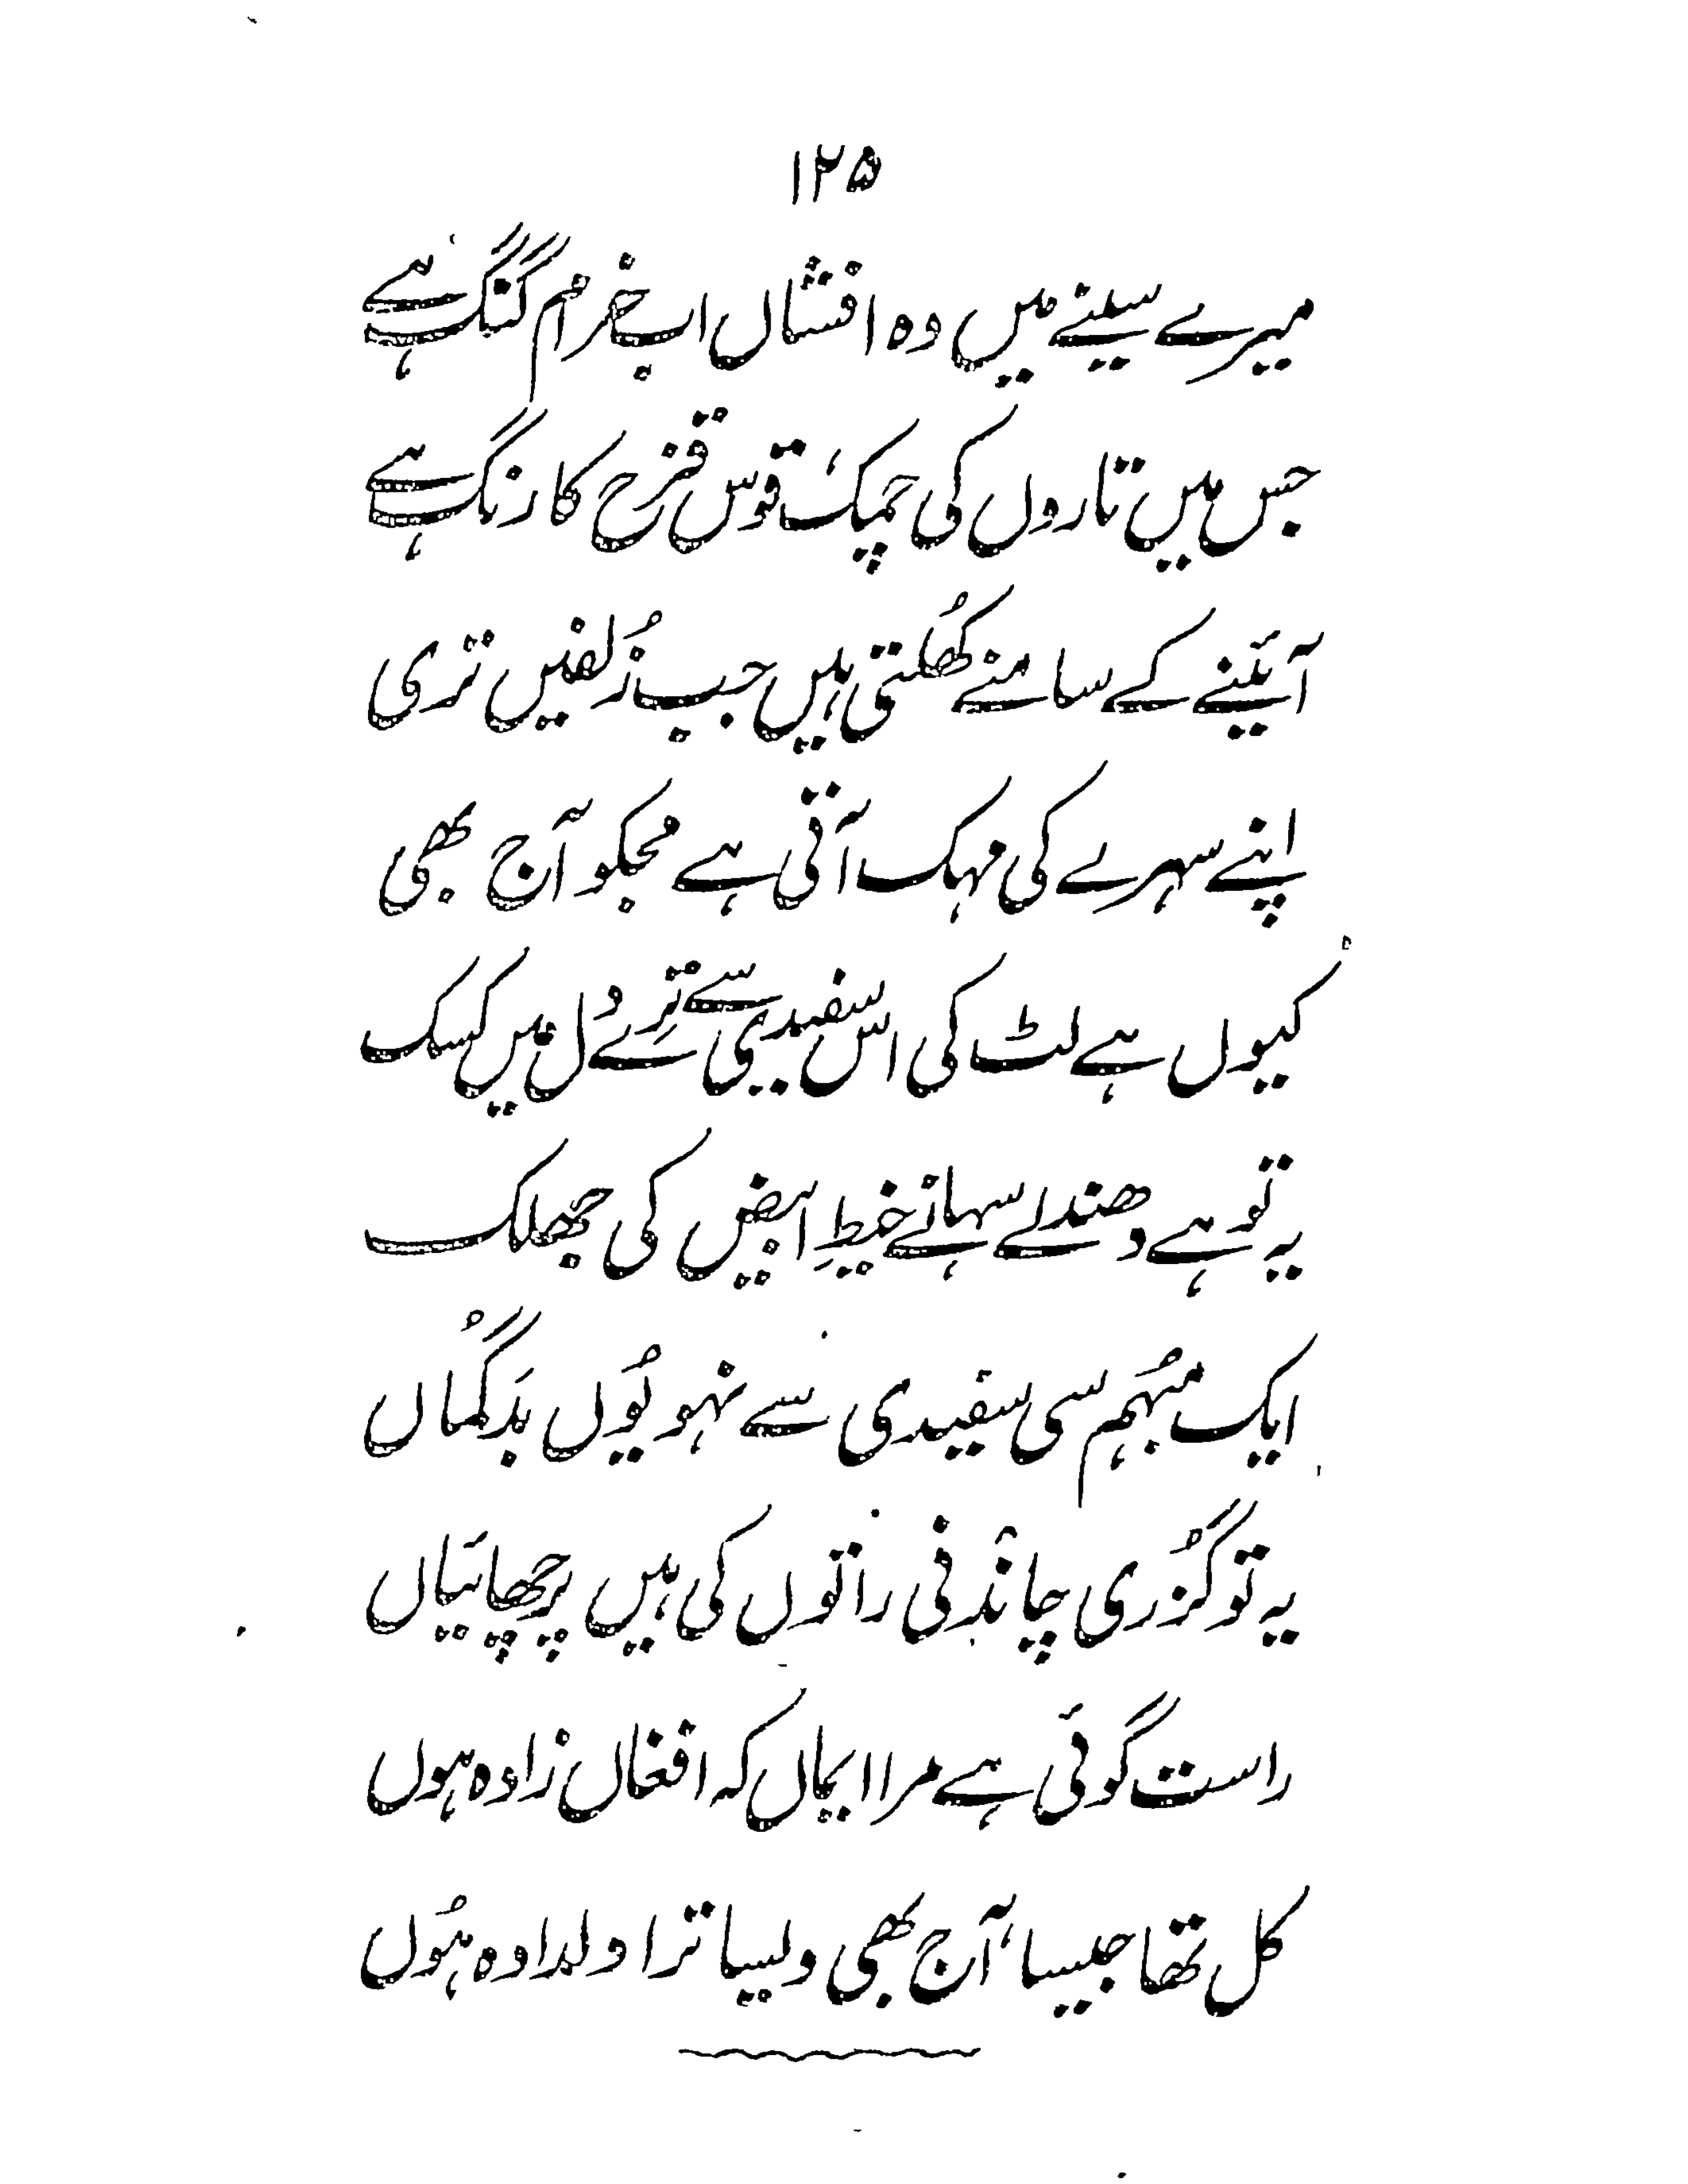 ۱۲۵
میرے سینے میں وہ افشاں اب خرام گنگ ہے
جس میں تاروں کی چمک، قوس قزح کا رنگ ہے
آئینے کے سامنے کھُلتی ہیں جب زُلفیں تری
اپنے سہرے کی مہک آتی ہے مجکو آج بھی
کیوں ہے لٹ کی اس سفیدی سے ترے دل میں کسک
یہ تو ہے دھندلے سہانے خیطِ ابیض کی جھلک
ایک مُبہم سی سفیدی سے نہو یُوں بدَگُماں
یہ تو گزُری چاندنی راتوں کی ہیں پرچھائیاں
راست گوئی ہے مرا ایماں کہ افغاں زادہ ہوں
کل تھا جیسا، آج بھی ویسا ترا دلدادہ ہُوں